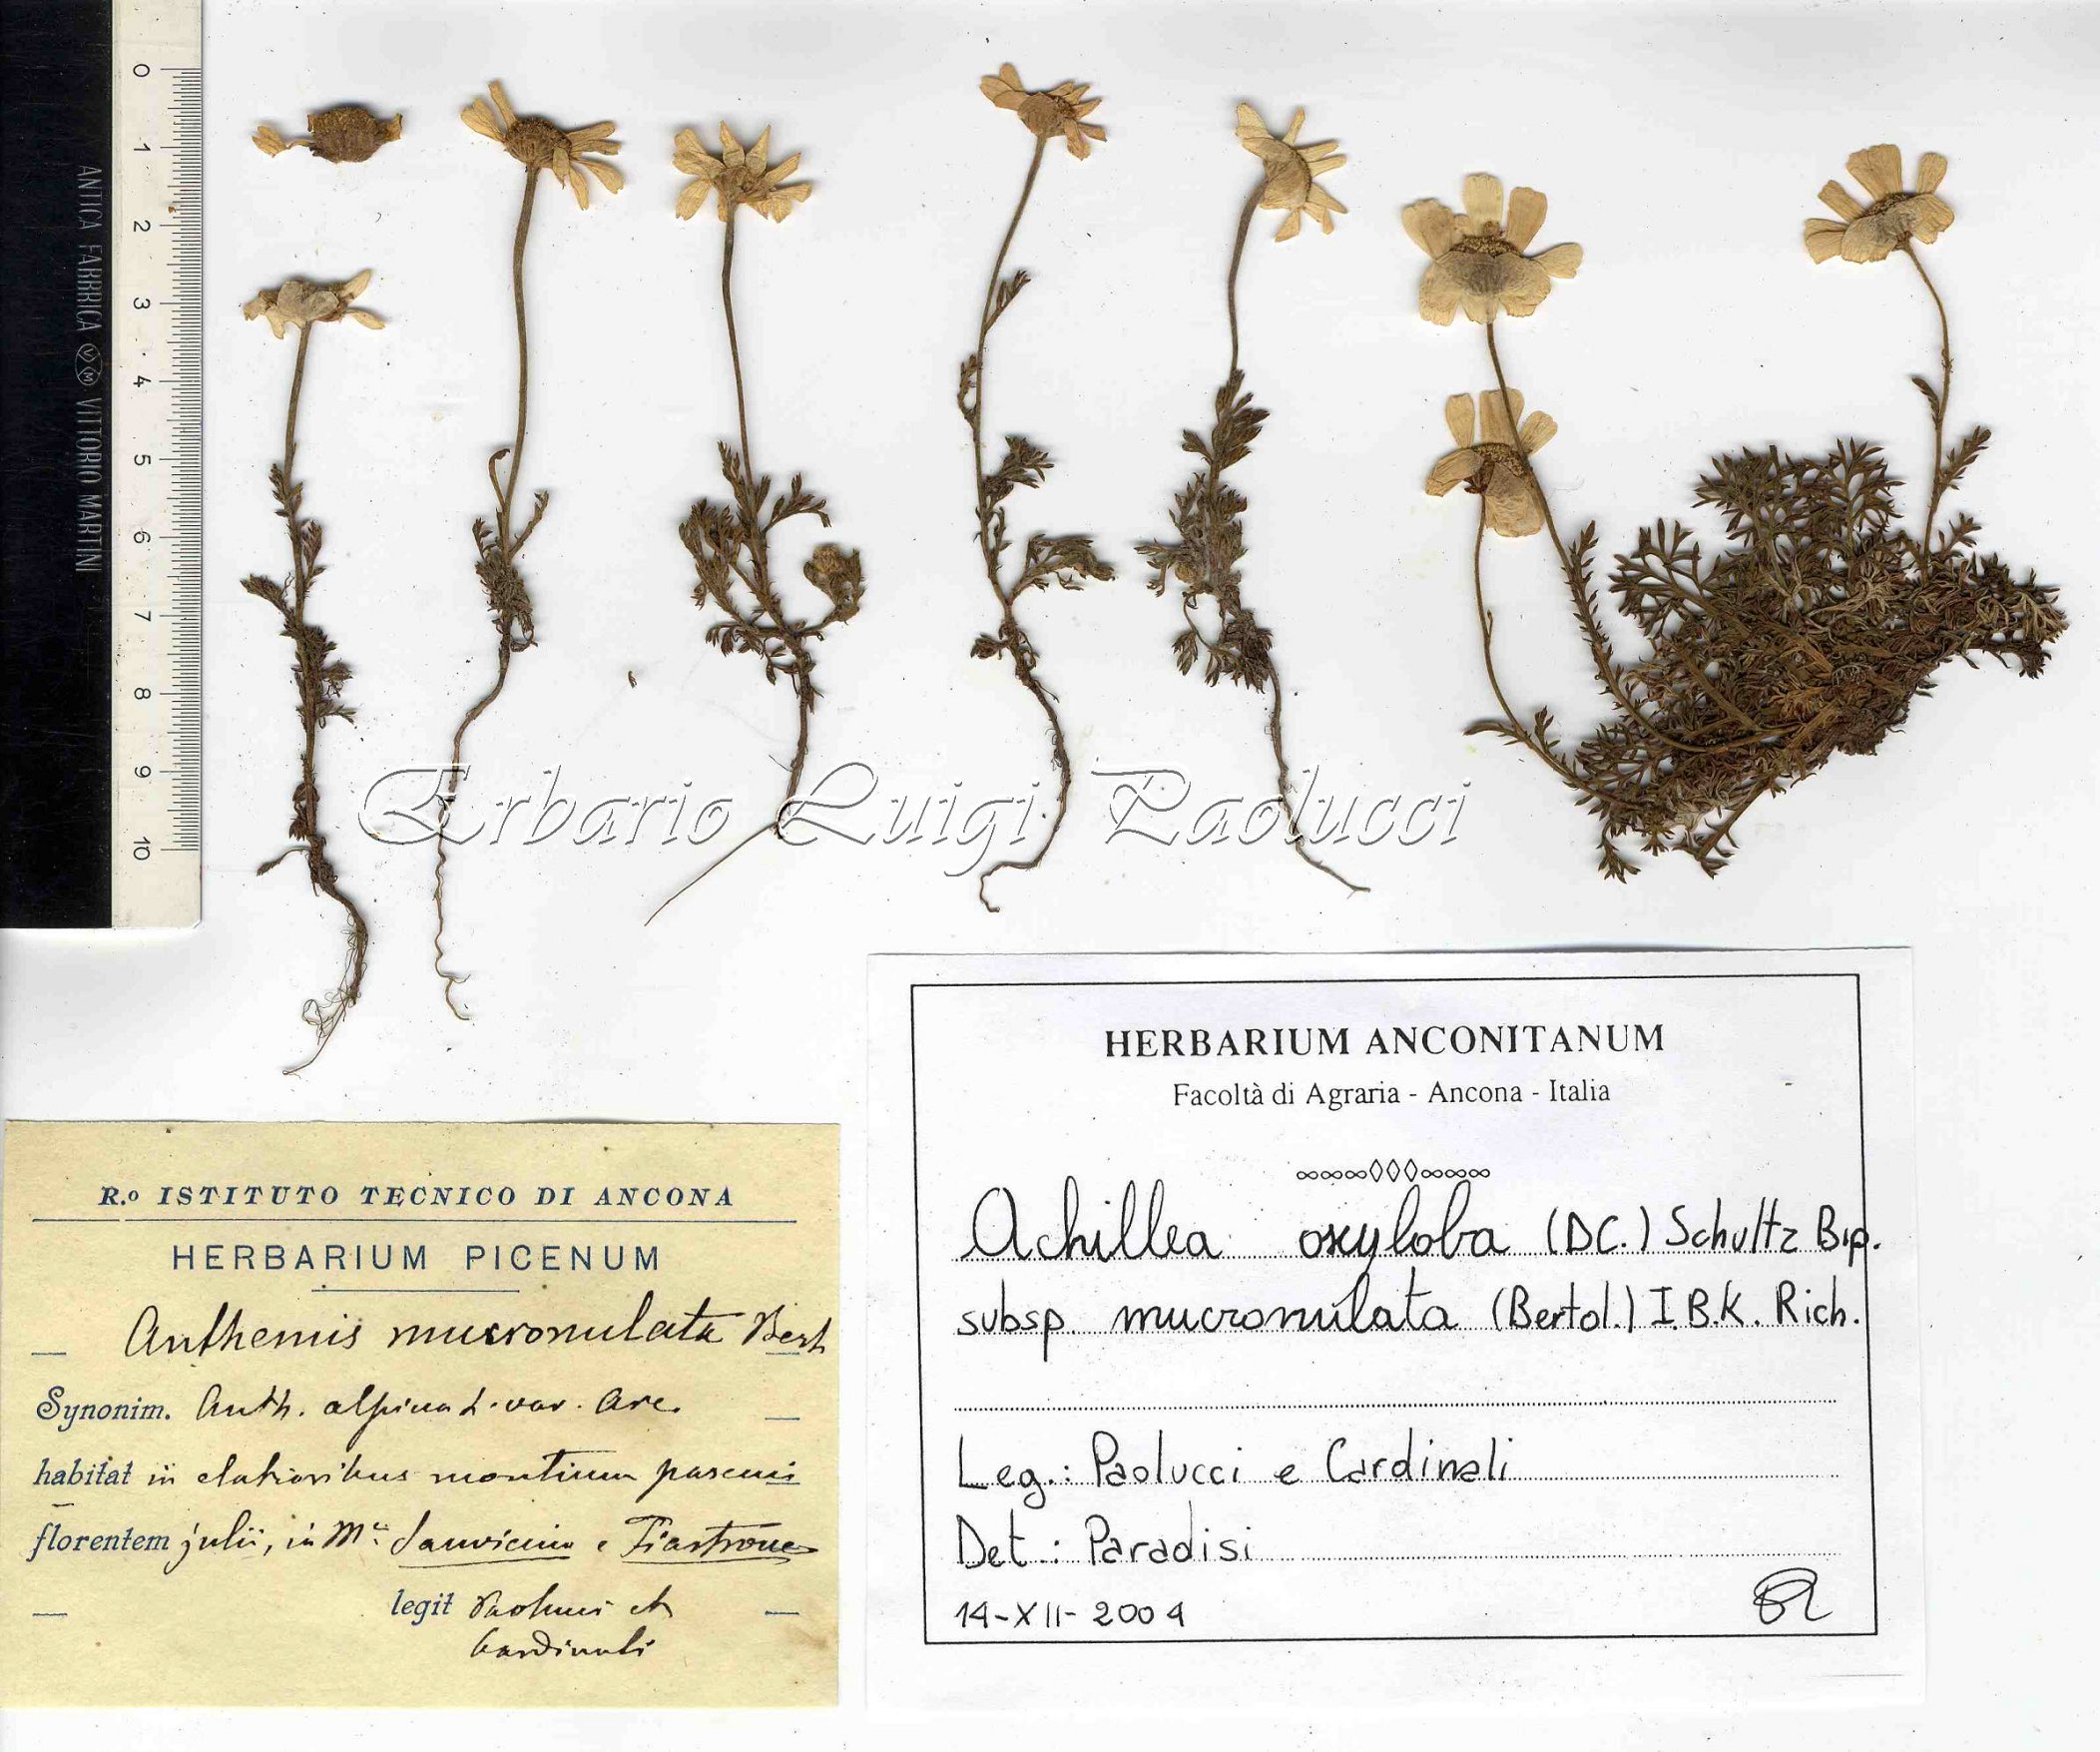 0
1
2
3
4
5
6
7
8
9
10
ANTICA FABBRICA VM VITTORIO MARTINI
Erbario Luigi Paolucci
R.o ISTITUTO TECNICO DI ANCONA
HERBARIUM PICENUM
Anthemis mucronulata Bert
Synonim. Anth. alpina L. var. Arc.
habitat in elatioribus montium pascuis
florentem julii, in M.ti Sanvicino e Fiastrone
legit Paolucci et
Cardinali
HERBARIUM ANCONITANUM
Facoltà di Agraria - Ancona - Italia
Achillea oxyloba (DC.) Schultz Bip.
subsp. mucronulata (Bertol.) I.B.K. Rich.
Leg.: Paolucci e Cardinali
Det.: Paradisi
14-XII-2004